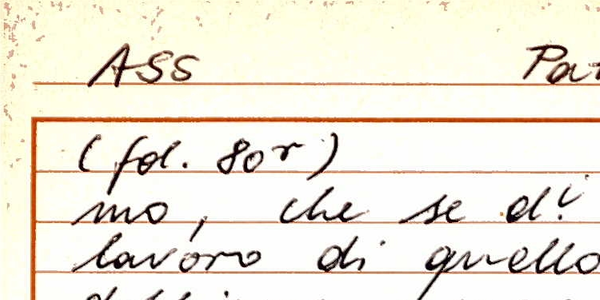 ASS
(fol. 80r)
mo, che se di
lavoro di quello